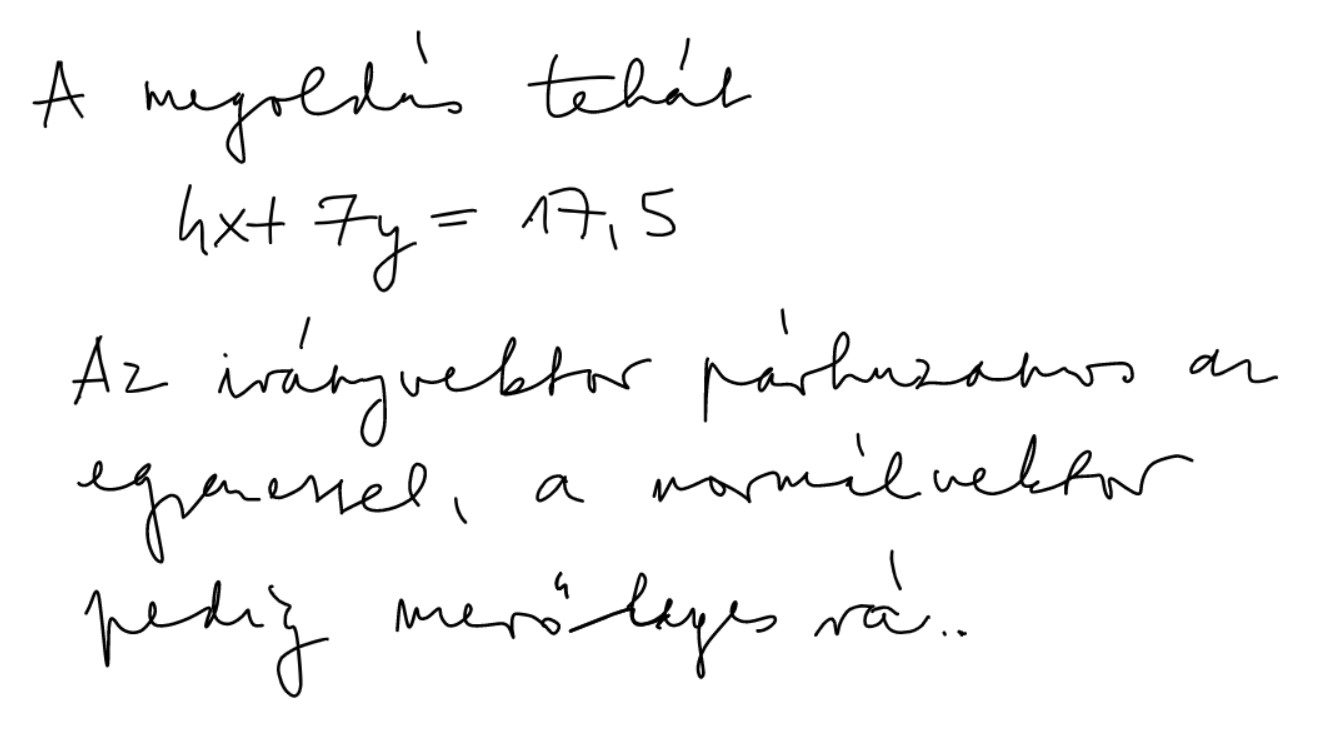 A megoldás tehát
4x+ 7y = 17,5
Az irányvektor párhuzamos az
egyenessel, a normálvektor
pedig merőleges rá..